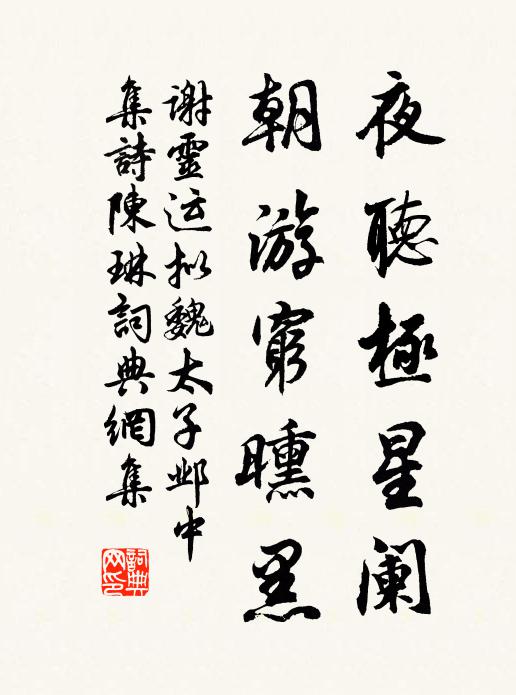 夜聽極星阑
朝游窮曛黑
谢靈运拟魏太子邺中
集詩陳琳詞典網集
詞典
网印